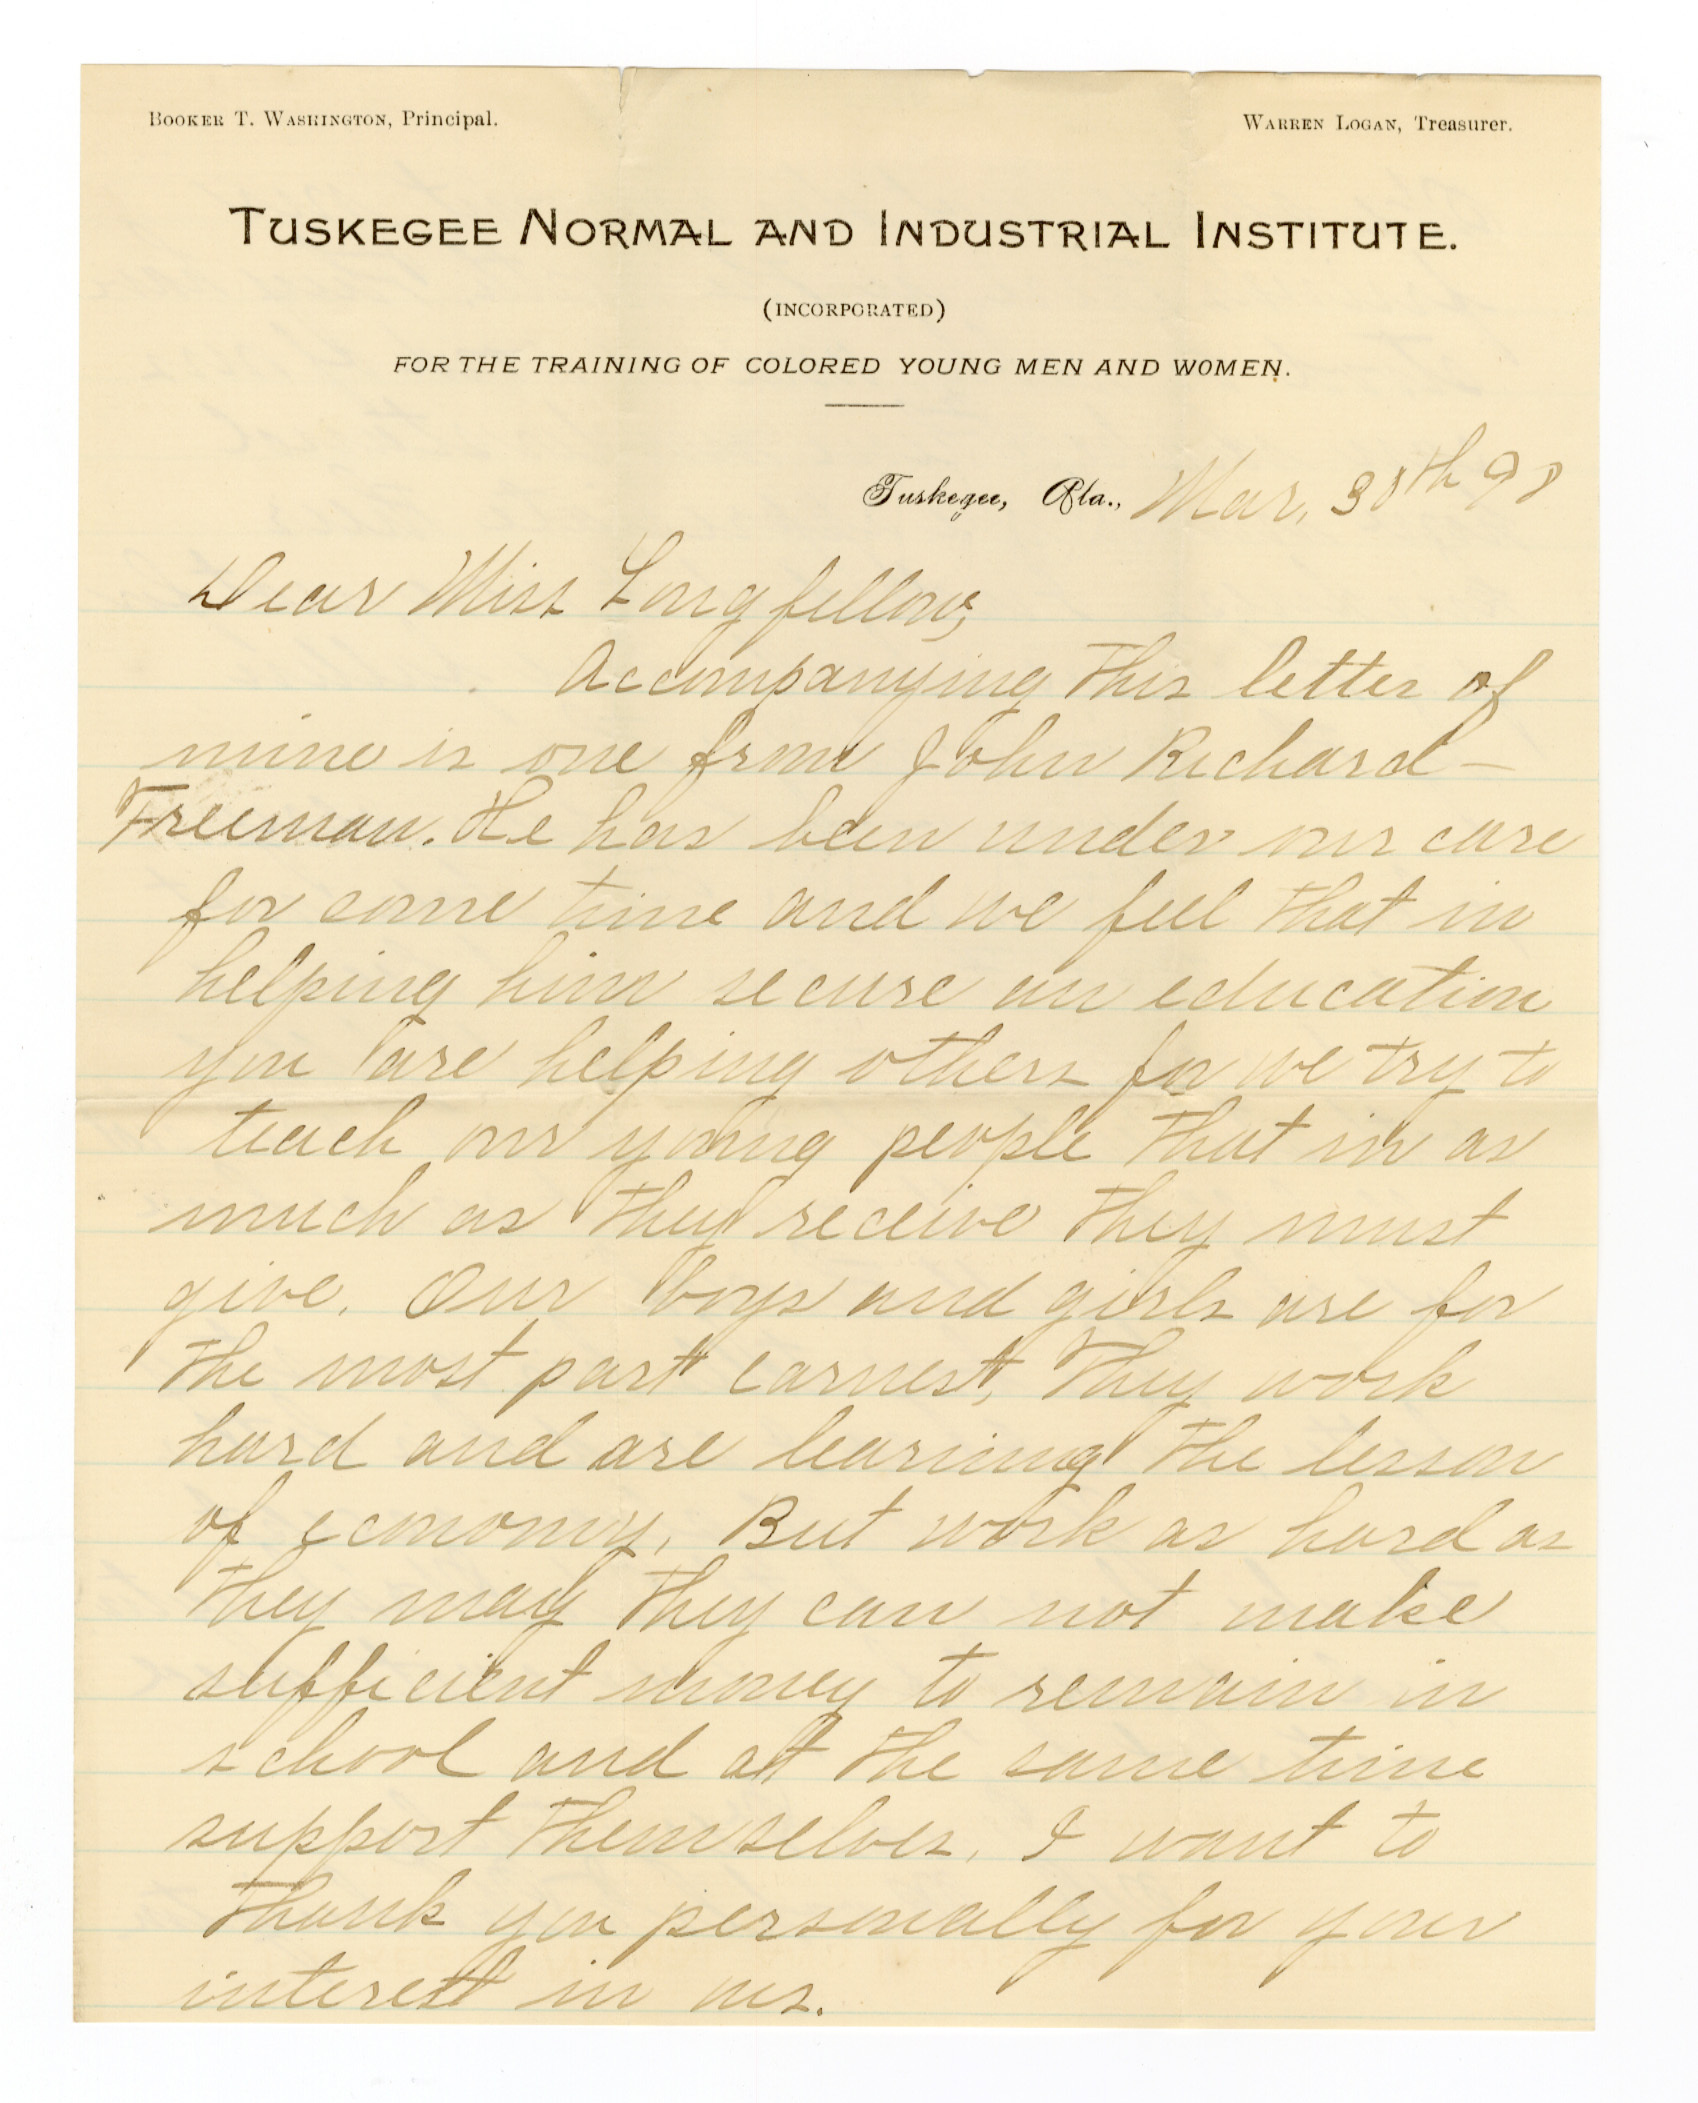 BOOKER T. WASHINGTON, Principal.
WARREN LOGAN, Treasurer.
TUSKEGEE NORMAL AND INDUSTRIAL INSTITUTE.
(INCORPORATED)
FOR THE TRAINING OF COLORED YOUNG MEN AND WOMEN.
Tuskegee, Ala., Mar, 30th 98
Dear Miss Longfellow,
Accompanying this letter of
mine is one from John Richard-
Freeman. He has been under our care
for some time and we feel that in
helping him secure an education
you are helping others for we try to
teach our young people that in as
much as they receive they must
give. Our boys and girls are for
the most part earnest, They work
hard and are learning the lesson
of economy. But work as hard as
they may they can not make
sufficient money to remain in
school and at the same time
support themselves. I want to
thank you personally for your
interest in us.